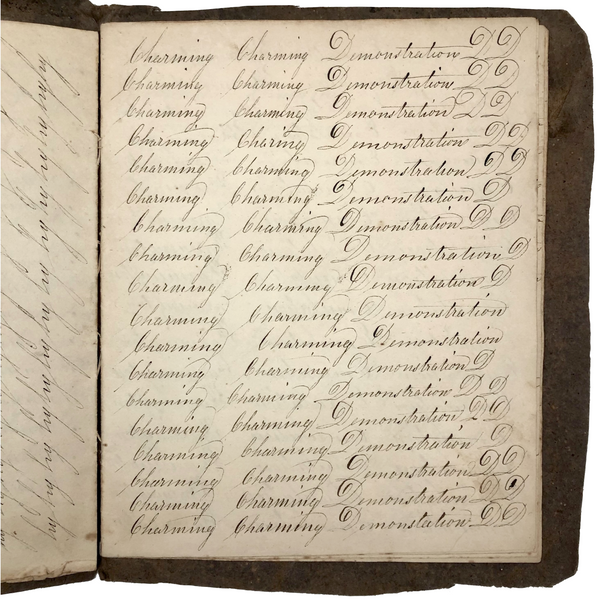 Charming Charming Demonstration D D
Charming Charming Demonstration D D
Charming Charming Demonstration D D
Charming Charing Demonstration D D
Charming Charming Demonstration D D
Charming Charming Demonstration D
Charming Charming Demonstration D D
Charming Charming Demonstration D
Charming Charming Demonstration D
Charming Charming Demonstration
Charming Charming Demonstration
Charming Charming Demonstration D
Charming Charming Demonstration D D
Charming Charming Demonstration D D
Charming Charming Demonstration D
Charming Charming Demonstration D D
Charming Charming Demonstration D D
Charming Charming Demonstration D D